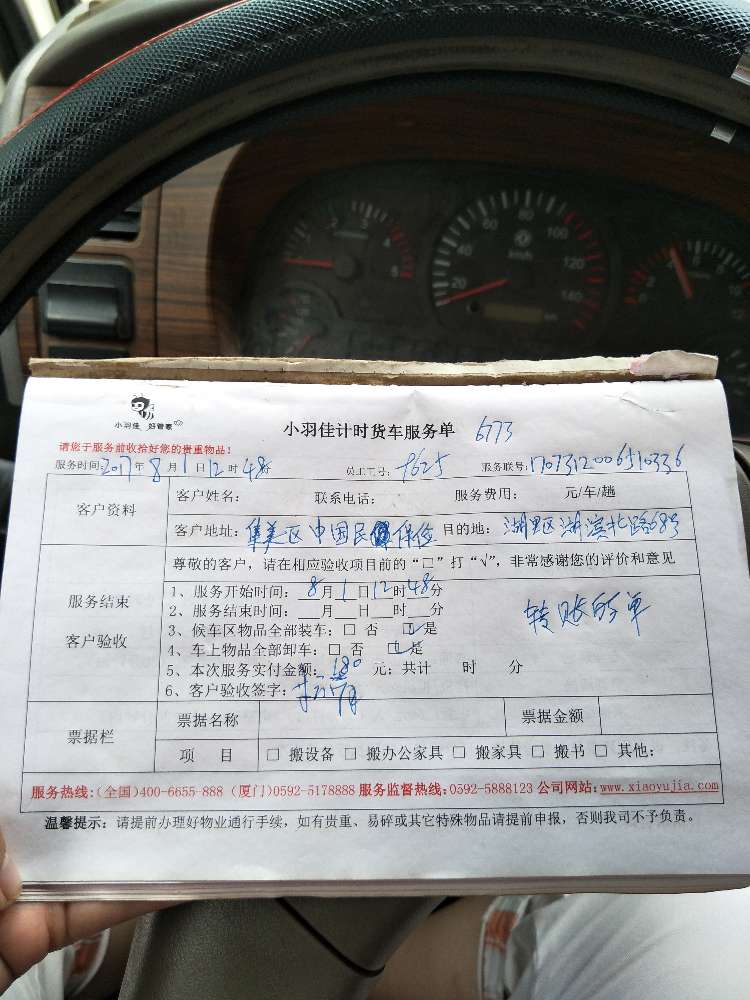 小羽佳 好管家
小羽佳计时货车服务单 6773
请您于服务前收拾好您的贵重物品!
服务时间:2017年8月1日12时48分 员工工号: 9625 服务联号:1707312006510336
客户资料
客户姓名: 联系电话: 服务费用: 元/车/趟
客户地址: 集美区中国民 保险 目的地: 湖里区湖滨北路68号
服务结束
客户验收
尊敬的客户,请在相应验收项目前的“□”打“√”,非常感谢您的评价和意见
1、服务开始时间: 8月1日12时48分
2、服务结束时间:___月___日___时___分
转账的单
3、候车区物品全部装车: □ 否 ☑是
4、车上物品全部卸车: □ 否 ☑是
5、本次服务实付金额: 180 元; 共计 时 分
6、客户验收签字:
票据栏
票据名称 票据金额
项 目 □ 搬设备 □ 搬办公家具 □ 搬家具 □ 搬书 □ 其他:
服务热线:(全国)400-6655-888 (厦门)0592-5178888 服务监督热线:0592-5888123 公司网站:www.xiaoyujia.com
温馨提示: 请提前办理好物业通行手续,如有贵重、易碎或其它特殊物品请提前申报,否则我司不予负责。
20 40 60 80 100 120 140
km/h